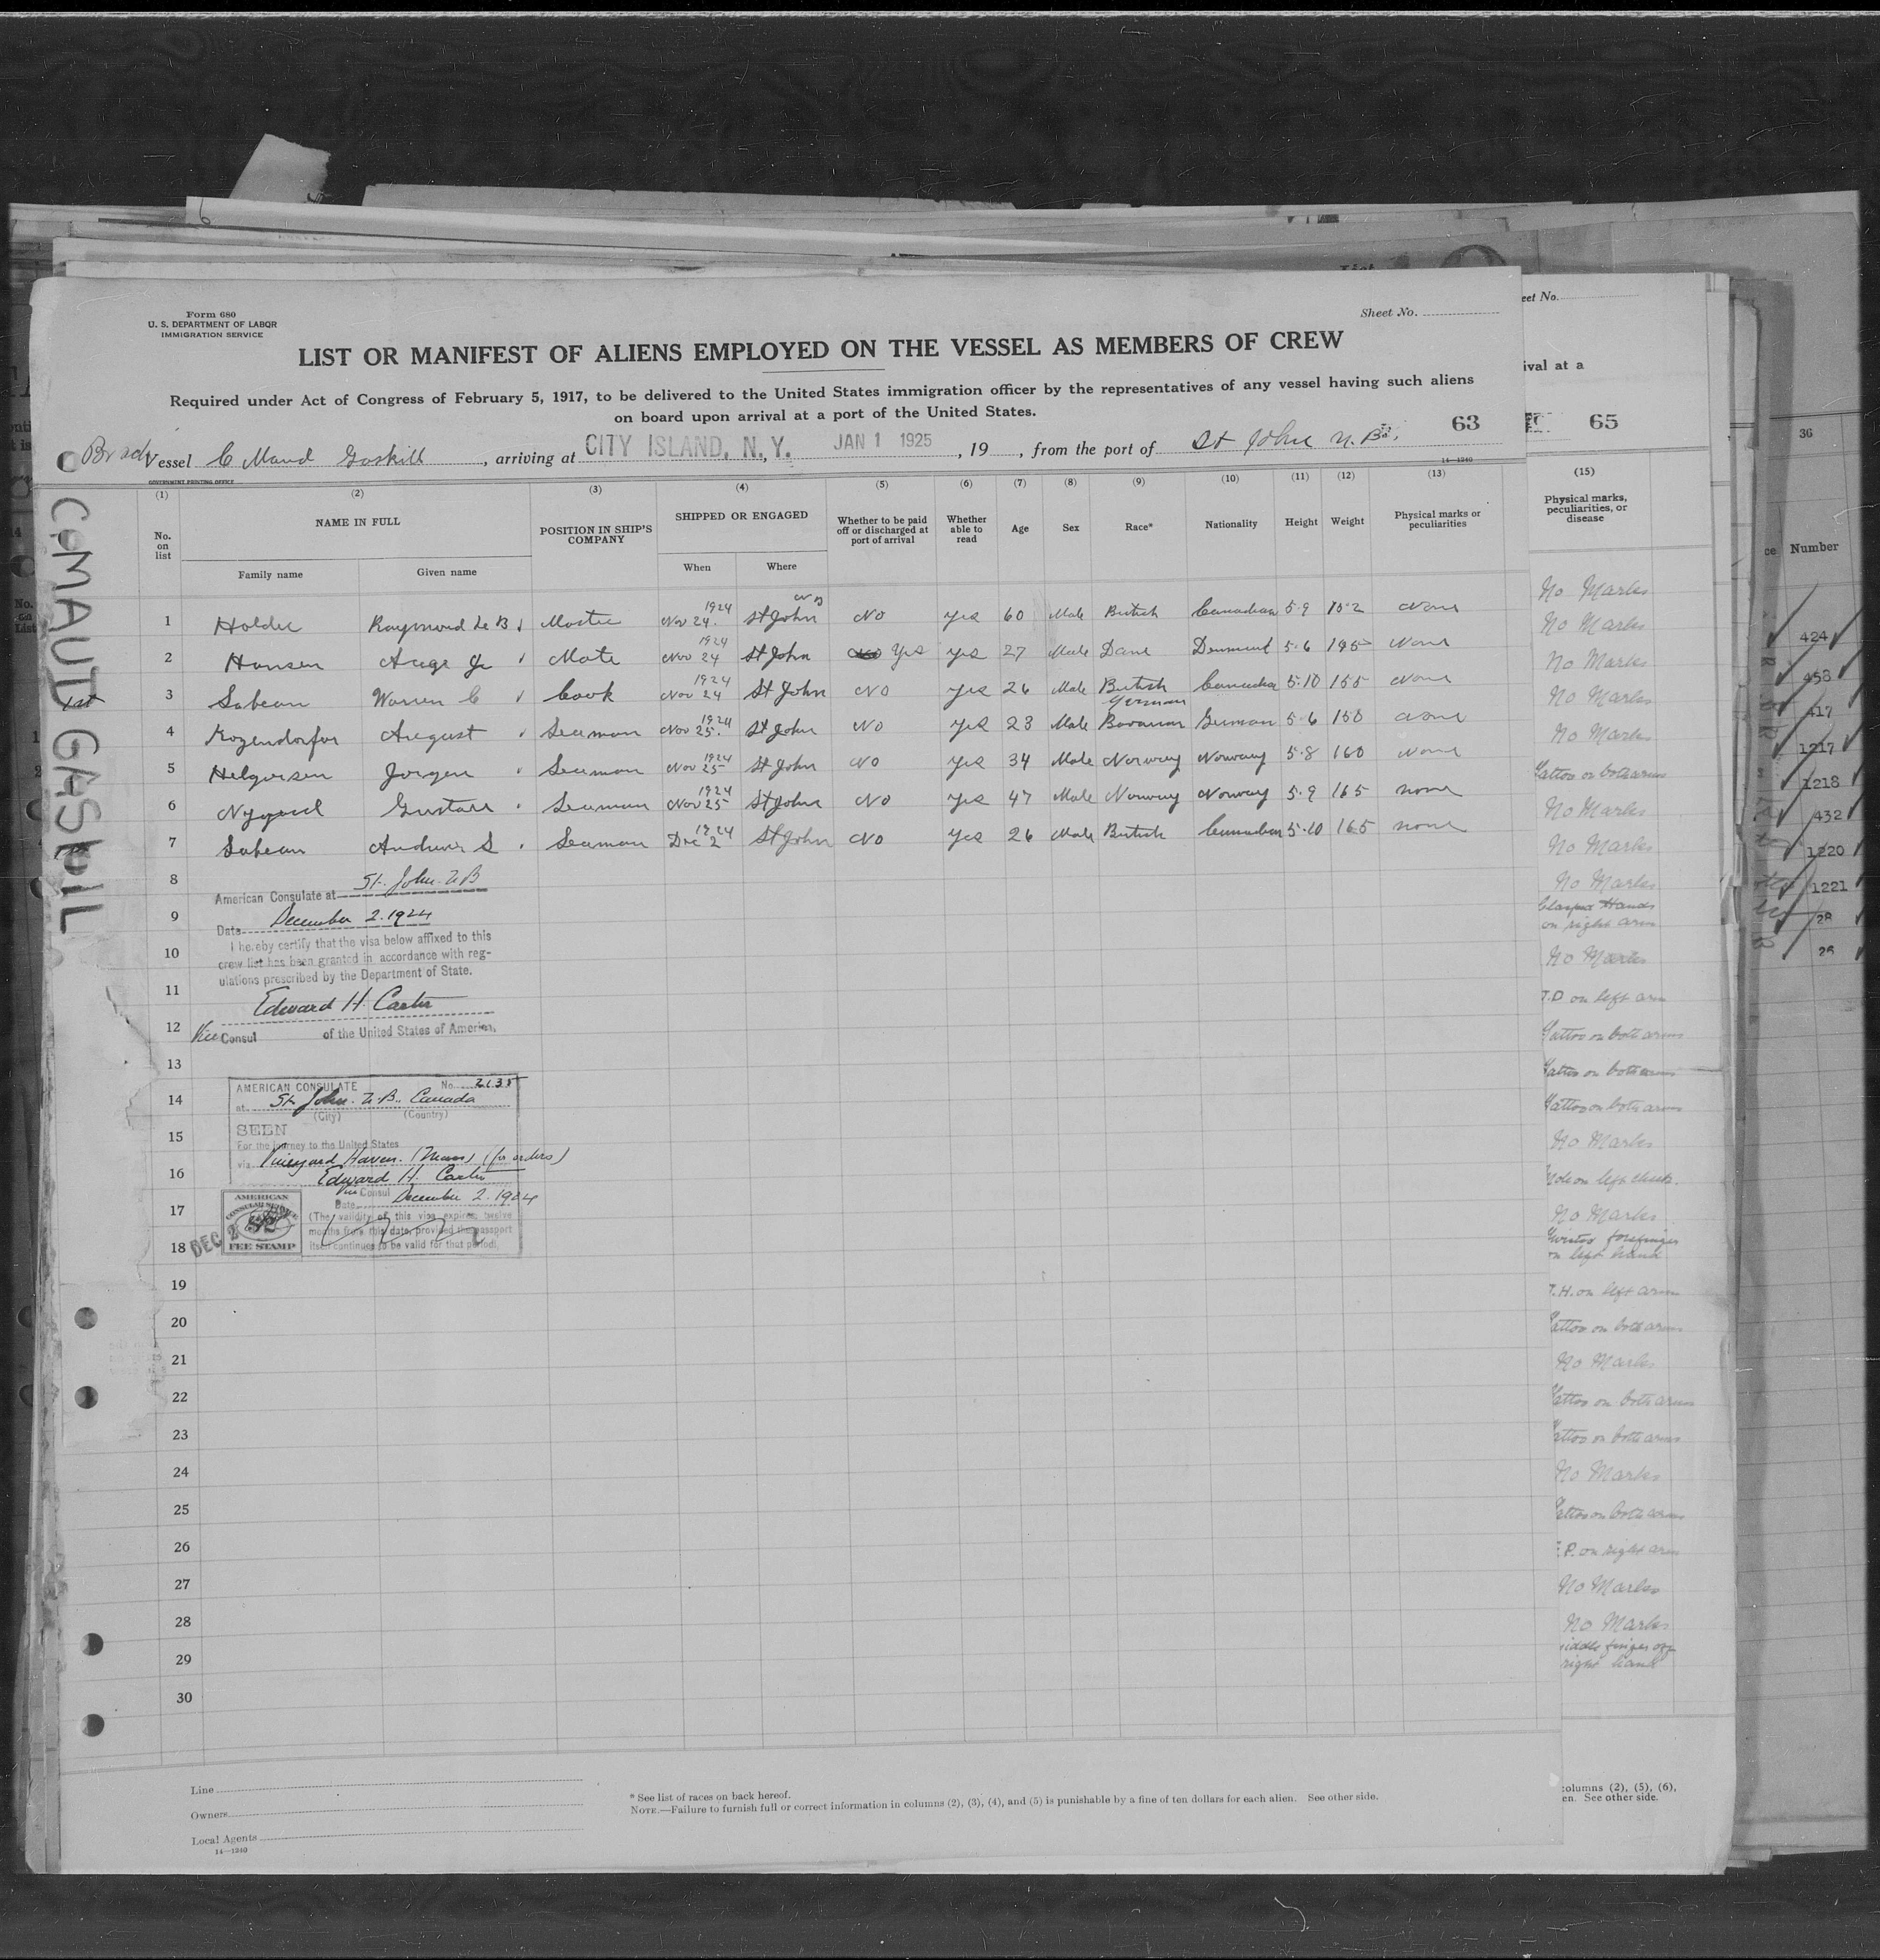 Form 680
U. S. DEPARTMENT OF LABOR
IMMIGRATION SERVICE
Sheet No.
LIST OR MANIFEST OF ALIENS EMPLOYED ON THE VESSEL AS MEMBERS OF CREW
Required under Act of Congress of February 5, 1917, to be delivered to the United States immigration officer by the representatives of any vessel having such aliens
on board upon arrival at a port of the United States.
63
Vessel C Maud Gaskill, arriving at CITY ISLAND, N.Y. JAN 1 1925, 19, from the port of St John N.B.
14—1240
GOVERNMENT PRINTING OFFICE
C. MAUD GASKILL
1st
(1) (2) (3) (4) (5) (6) (7) (8) (9) (10) (11) (12) (13)
No. on list NAME IN FULL POSITION IN SHIP'S COMPANY SHIPPED OR ENGAGED Whether to be paid off or discharged at port of arrival Whether able to read Age Sex Race* Nationality Height Weight Physical marks or peculiarities
Family name Given name When Where
1 Holder Raymond Le B Master 1924 Nov 24. St John NB No yes 60 Male British Canadian 5·9 152 None
2 Hansen Mate 1924 Nov 24 St John Yes yes 27 Male Dane 5·6 195 None
3 Sabean Warren C Cook 1924 Nov 24 St John No yes 26 Male British 5·10 155 None
4 August Seaman 1924 Nov 25. St John No yes 23 Male German Bavarian German 5·6 150 None
5 Helgersen Jorgen Seaman 1924 Nov 25 St John No yes 34 Male Norway Norway 5·8 160 None
6 Seaman 1924 Nov 25 St John No yes 47 Male Norway Norway 5·9 165 none
7 Sabean Andrew S Seaman 1924 Dec 2 St John No yes 26 Male British Canadian 5·10 165 none
8
American Consulate at St. John. N B
9
Date December 2. 1924
I hereby certify that the visa below affixed to this
10
crew list has been granted in accordance with reg-
ulations prescribed by the Department of State.
11
Edward H. Carter
12
Vice Consul of the United States of America.
13
AMERICAN CONSULATE No. 2135
14
at St. John. N. B. Canada
(City) (Country)
15
SEEN
For the journey to the United States
via Vineyard Haven. (Mass) (for orders)
16
Edward H. Carter
Vice Consul
Date December 2. 1924
17
(The validity of this visa expires twelve
months from this date, provided the passport
itself continues to be valid for that period)
AMERICAN
CONSULAR SERVICE
$2
FEE STAMP
DEC 2
18
19
20
21
22
23
24
25
26
27
28
29
30
Line
Owners
Local Agents
14—1240
* See list of races on back hereof.
NOTE.—Failure to furnish full or correct information in columns (2), (3), (4), and (5) is punishable by a fine of ten dollars for each alien. See other side.
eet No.
ival at a
65
(15)
Physical marks,
peculiarities, or
disease
No Marks
No Marks
No Marks
No Marks
No Marks
Tattoo on both arms
No Marks
No Marks
No Marks
Hands
on right arm
No Marks
J.D on left arm
Tattoo on both arms
Tattoo on both arms
Tattoo on both arms
No Marks
Mole on left cheek.
No Marks
forefinger
on left hand
T.H. on left arm
Tattoo on both arms
No Marks
Tattoo on both arms
Tattoo on both arms
No Marks
Tattoo on both arms
P. on right arm
No Marks
No Marks
iddle finger off
right hand
columns (2), (5), (6),
en. See other side.
36
ce Number
424
458
417
1217
1218
432
1220
1221
28
26